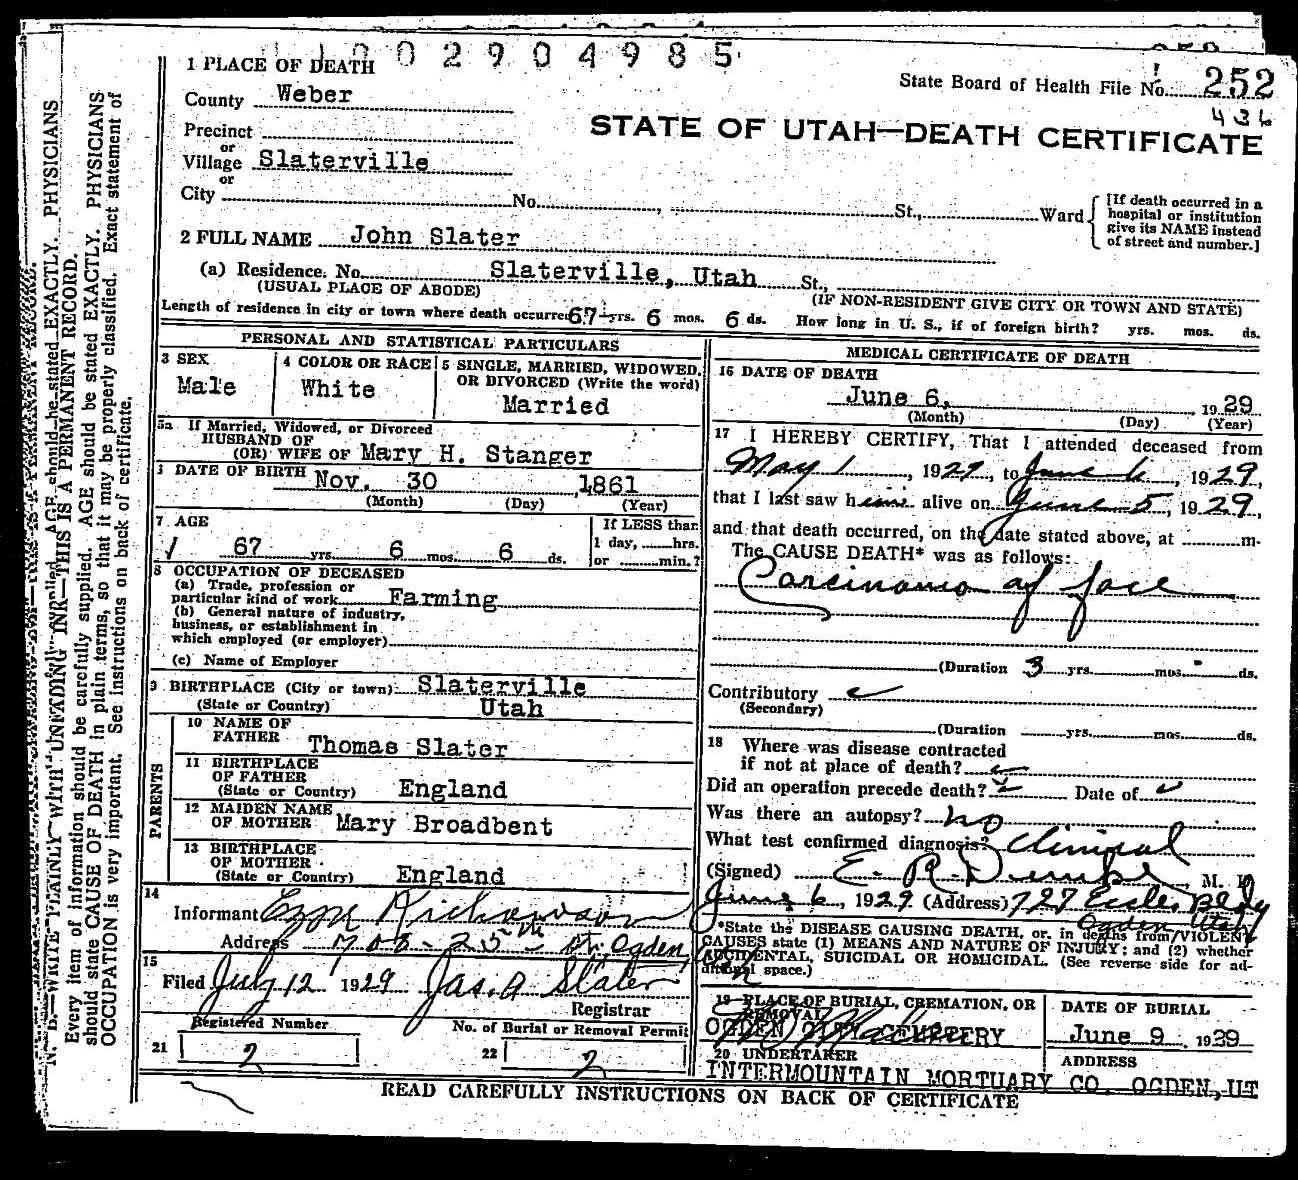 0 0 2 9 0 4 9 8 5
1 PLACE OF DEATH
State Board of Health File No. 252
436
County Weber
STATE OF UTAH—DEATH CERTIFICATE
Precinct
or
Village Slaterville
or
City No. , St., Ward
[If death occurred in a
hospital or institution
give its NAME instead
of street and number.]
2 FULL NAME John Slater
(a) Residence. No. Slaterville, Utah St.,
(USUAL PLACE OF ABODE) (IF NON-RESIDENT GIVE CITY OR TOWN AND STATE)
Length of residence in city or town where death occurred 67 yrs. 6 mos. 6 ds. How long in U. S., if of foreign birth? yrs. mos. ds.
PERSONAL AND STATISTICAL PARTICULARS
3 SEX
Male
4 COLOR OR RACE
White
5 SINGLE, MARRIED, WIDOWED,
OR DIVORCED (Write the word)
Married
5a If Married, Widowed, or Divorced
HUSBAND OF
(OR) WIFE OF Mary H. Stanger
DATE OF BIRTH Nov. 30 , 1861
(Month) (Day) (Year)
7 AGE
67 yrs. 6 mos. 6 ds.
If LESS than
1 day, hrs.
or min.?
8 OCCUPATION OF DECEASED
(a) Trade, profession or
particular kind of work Farming
(b) General nature of industry,
business, or establishment in
which employed (or employer)
(c) Name of Employer
9 BIRTHPLACE (City or town) Slaterville
(State or Country) Utah
PARENTS
10 NAME OF
FATHER Thomas Slater
11 BIRTHPLACE
OF FATHER
(State or Country) England
12 MAIDEN NAME
OF MOTHER Mary Broadbent
13 BIRTHPLACE
OF MOTHER
(State or Country) England
14
Informant Richardson
Address 708 - 25th St. Ogden,
15
Filed July 12 1929 Jas. A Slater
Registrar
Registered Number
21 2
No. of Burial or Removal Permit
22 2
MEDICAL CERTIFICATE OF DEATH
16 DATE OF DEATH
June 6, , 1929
(Month) (Day) (Year)
17 I HEREBY CERTIFY, That I attended deceased from
May 1 , 1929, to June 6 , 1929,
that I last saw him alive on June 5, 1929,
and that death occurred, on the date stated above, at m.
The CAUSE DEATH* was as follows:
Carcinoma of face
(Duration 3 yrs. mos. ds.
Contributory
(Secondary)
(Duration yrs. mos. ds.
18 Where was disease contracted
if not at place of death?
Did an operation precede death? Date of
Was there an autopsy? no
What test confirmed diagnosis? Clinical
(Signed) E. R. Dumke, M. D.
June 6, 1929 (Address) 727 Eccles Bldg
Ogden Utah
*State the DISEASE CAUSING DEATH, or. in deaths from VIOLENT
CAUSES state (1) MEANS AND NATURE OF INJURY; and (2) whether
ACCIDENTAL, SUICIDAL OR HOMICIDAL. (See reverse side for ad-
ditional space.)
19 PLACE OF BURIAL, CREMATION, OR
REMOVAL
OGDEN CITY CEMETERY
DATE OF BURIAL
June 9 , 1939
20 UNDERTAKER ADDRESS
INTERMOUNTAIN MORTUARY CO. OGDEN, UT
READ CAREFULLY INSTRUCTIONS ON BACK OF CERTIFICATE
N. B.—WRITE PLAINLY WITH UNFADING INK—THIS IS A PERMANENT RECORD.
Every item of information should be carefully supplied. AGE should be stated EXACTLY. PHYSICIANS
should state CAUSE OF DEATH in plain terms, so that it may be properly classified. Exact statement of
OCCUPATION is very important. See instructions on back of certificate.